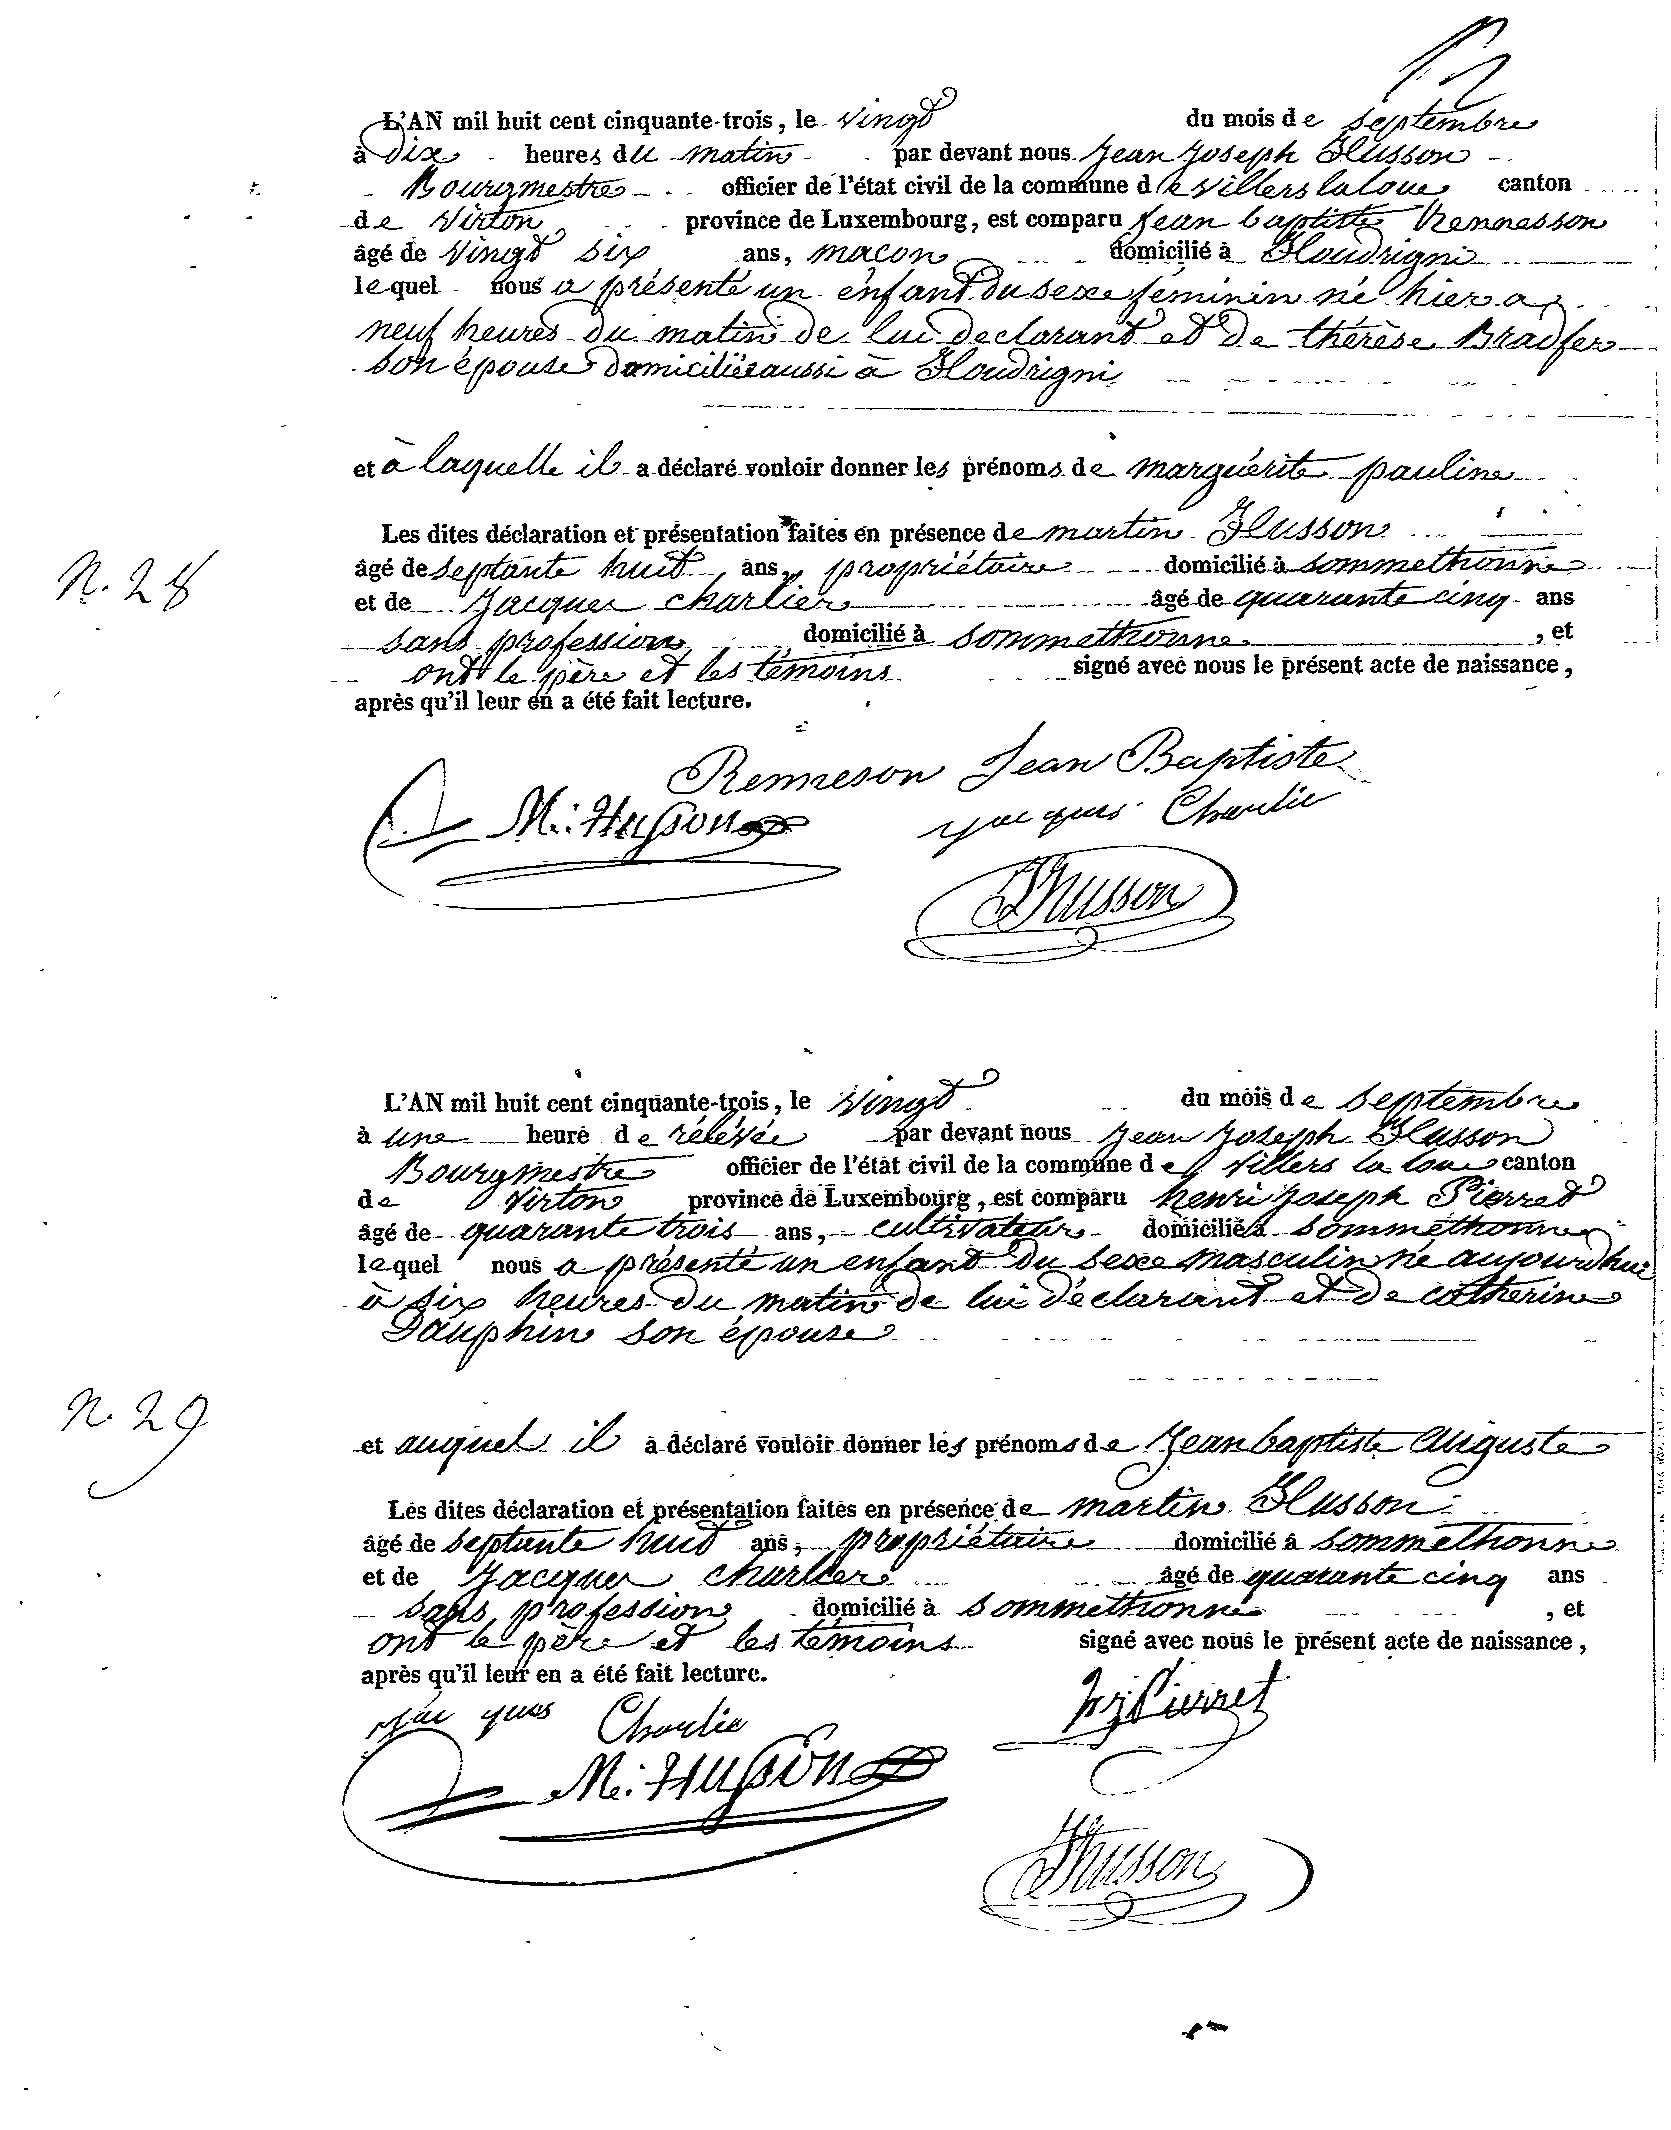 L'AN mil huit cent cinquante-trois, le vingt du mois de septembre
à dix heures du matin par devant nous Jean Joseph Husson
Bourgmestre officier de l'état civil de la commune de villers la loue canton
de Virton province de Luxembourg, est comparu Jean baptiste Rennesson
âgé de vingt six ans, maçon domicilié à Houdrigni
lequel nous a présenté un enfant du sexe féminin né hier a
neuf heures du matin de lui declarant et de thérèse Bradfer
son épouse domiciliée aussi à Houdrigni
et à laquelle il a déclaré vouloir donner les prénoms de marguérite pauline
Les dites déclaration et présentation faites en présence de martin Husson
N. 28
âgé de septante huit ans, propriétaire domicilié à sommethonne
et de Jacques charlier âgé de quarante cinq ans
sans profession domicilié à sommethonne, et
ont le père et les témoins signé avec nous le présent acte de naissance,
après qu'il leur en a été fait lecture.
Renneson Jean Baptiste
M. Husson jacques Charlie
JHusson
L'AN mil huit cent cinquante-trois, le vingt du mois de septembre
à une heure de rélévée par devant nous Jean Joseph Husson
Bourgmestre officier de l'état civil de la commune de villers la loue canton
de Virton province de Luxembourg, est comparu henri Joseph Pierret
âgé de quarante trois ans, cultivateur domicilié à sommethonne
lequel nous a présenté un enfant du sexe masculin né aujourdhui
à six heures du matin de lui déclarant et de catherine
Dauphin son épouse
N. 29
et auquel il a déclaré vouloir donner les prénoms de Jean baptiste auguste
Les dites déclaration et présentation faites en présence de martin Husson
âgé de septante huit ans, propriétaire domicilié à sommethonne
et de Jacques charlier âgé de quarante cinq ans
sans profession domicilié à sommethonne, et
ont le père et les témoins signé avec nous le présent acte de naissance,
après qu'il leur en a été fait lecture.
jacques Charlie hjPierret
M. Husson
JHusson